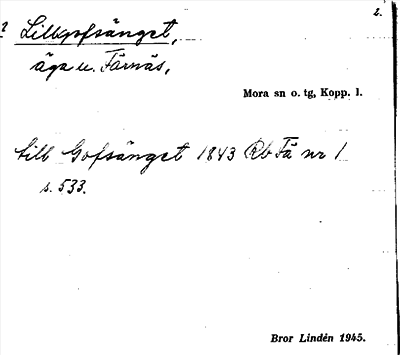 2.
Lillgofsänget,
äga u. Färnäs,
Mora sn o. tg, Kopp. l.
till Gofsänget 1843 Rb Fä nr 1
s. 533.
Bror Lindén 1945.